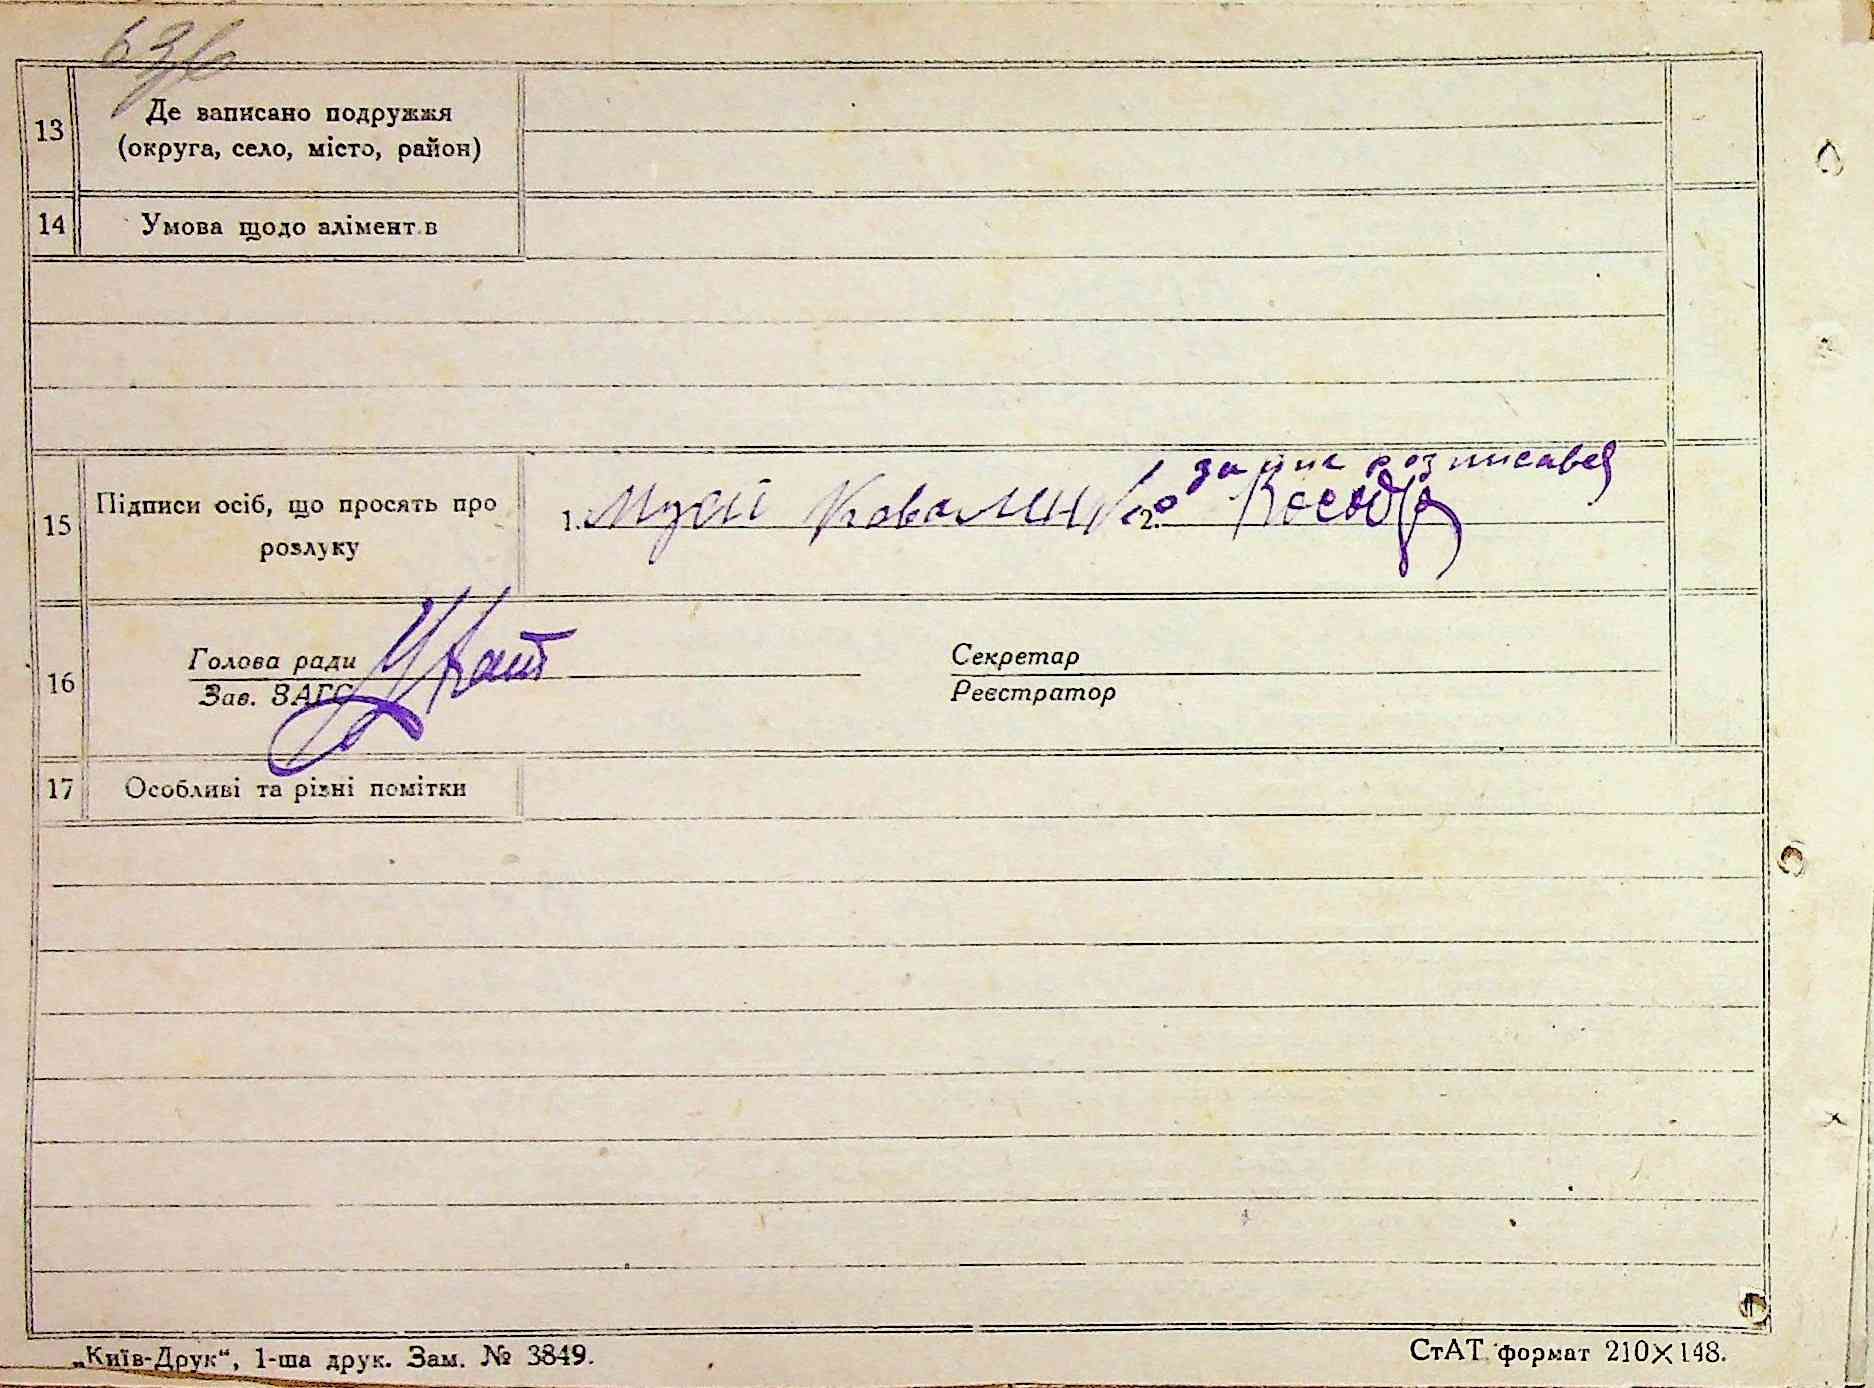 13
Де записано подружжя
(округа, село, місто, район)
14
Умова щодо алімент.в
15
Підписи осіб, що просять про
розлуку
1. Мусій Ковален 2.
за
розписався
16
Голова ради
Зав. ЗАГС
Секретар
Реєстратор
17
Особливі та різні помітки
„Київ-Друк“, 1-ша друк. Зам. № 3849.
СтАТ формат 210×148.